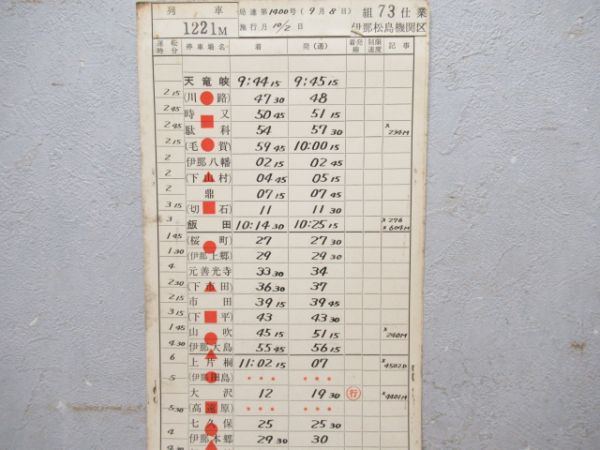 列車 局達第1400号(9月8日) 組73仕業
1221M 施行月10/2日 伊那松島機関区
運転時分 停車場名 着 発(通) 着発線 制限速度 記事
天竜峡 9:44 15 9:45 15
2 15 (川路) 47 30 48
2 45 時又 50 45 51 15
2 45 駄科 54 57 30 × 234M
2 15 (毛賀) 59 45 10:00 15
2 伊那八幡 02 15 02 45
2 (下山村) 04 45 05 15
2 鼎 07 15 07 45
3 15 (切石) 11 11 30
3 飯田 10:14 30 10:25 15 × 276 × 604M
1 45 (桜町) 27 27 30
1 30 (伊那上郷) 29 29 30
4 元善光寺 33 30 34
2 30 (下市田) 36 30 37
2 15 市田 39 15 39 45
3 15 (下平) 43 43 30
1 45 山吹 45 15 51 15 × 240M
4 30 伊那大島 55 45 56 15
6 上片桐 11:02 15 07 × 4502D
5 (伊那田島) ・・・ ・・・
大沢 12 19 30 行 × 4401M
5 30 (高遠原) ・・・ ・・・
七久保 25 25 30
4 伊那本郷 29 30 30